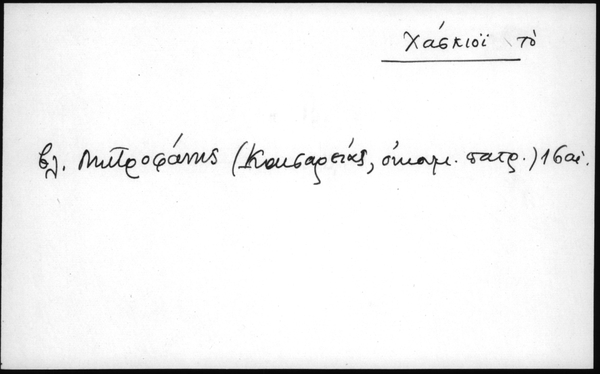 Χάσκιοϊ τὸ
βλ. Μητροφάνης (Καισαρείας, οἰκουμ. πατρ.) 16 αἰ.